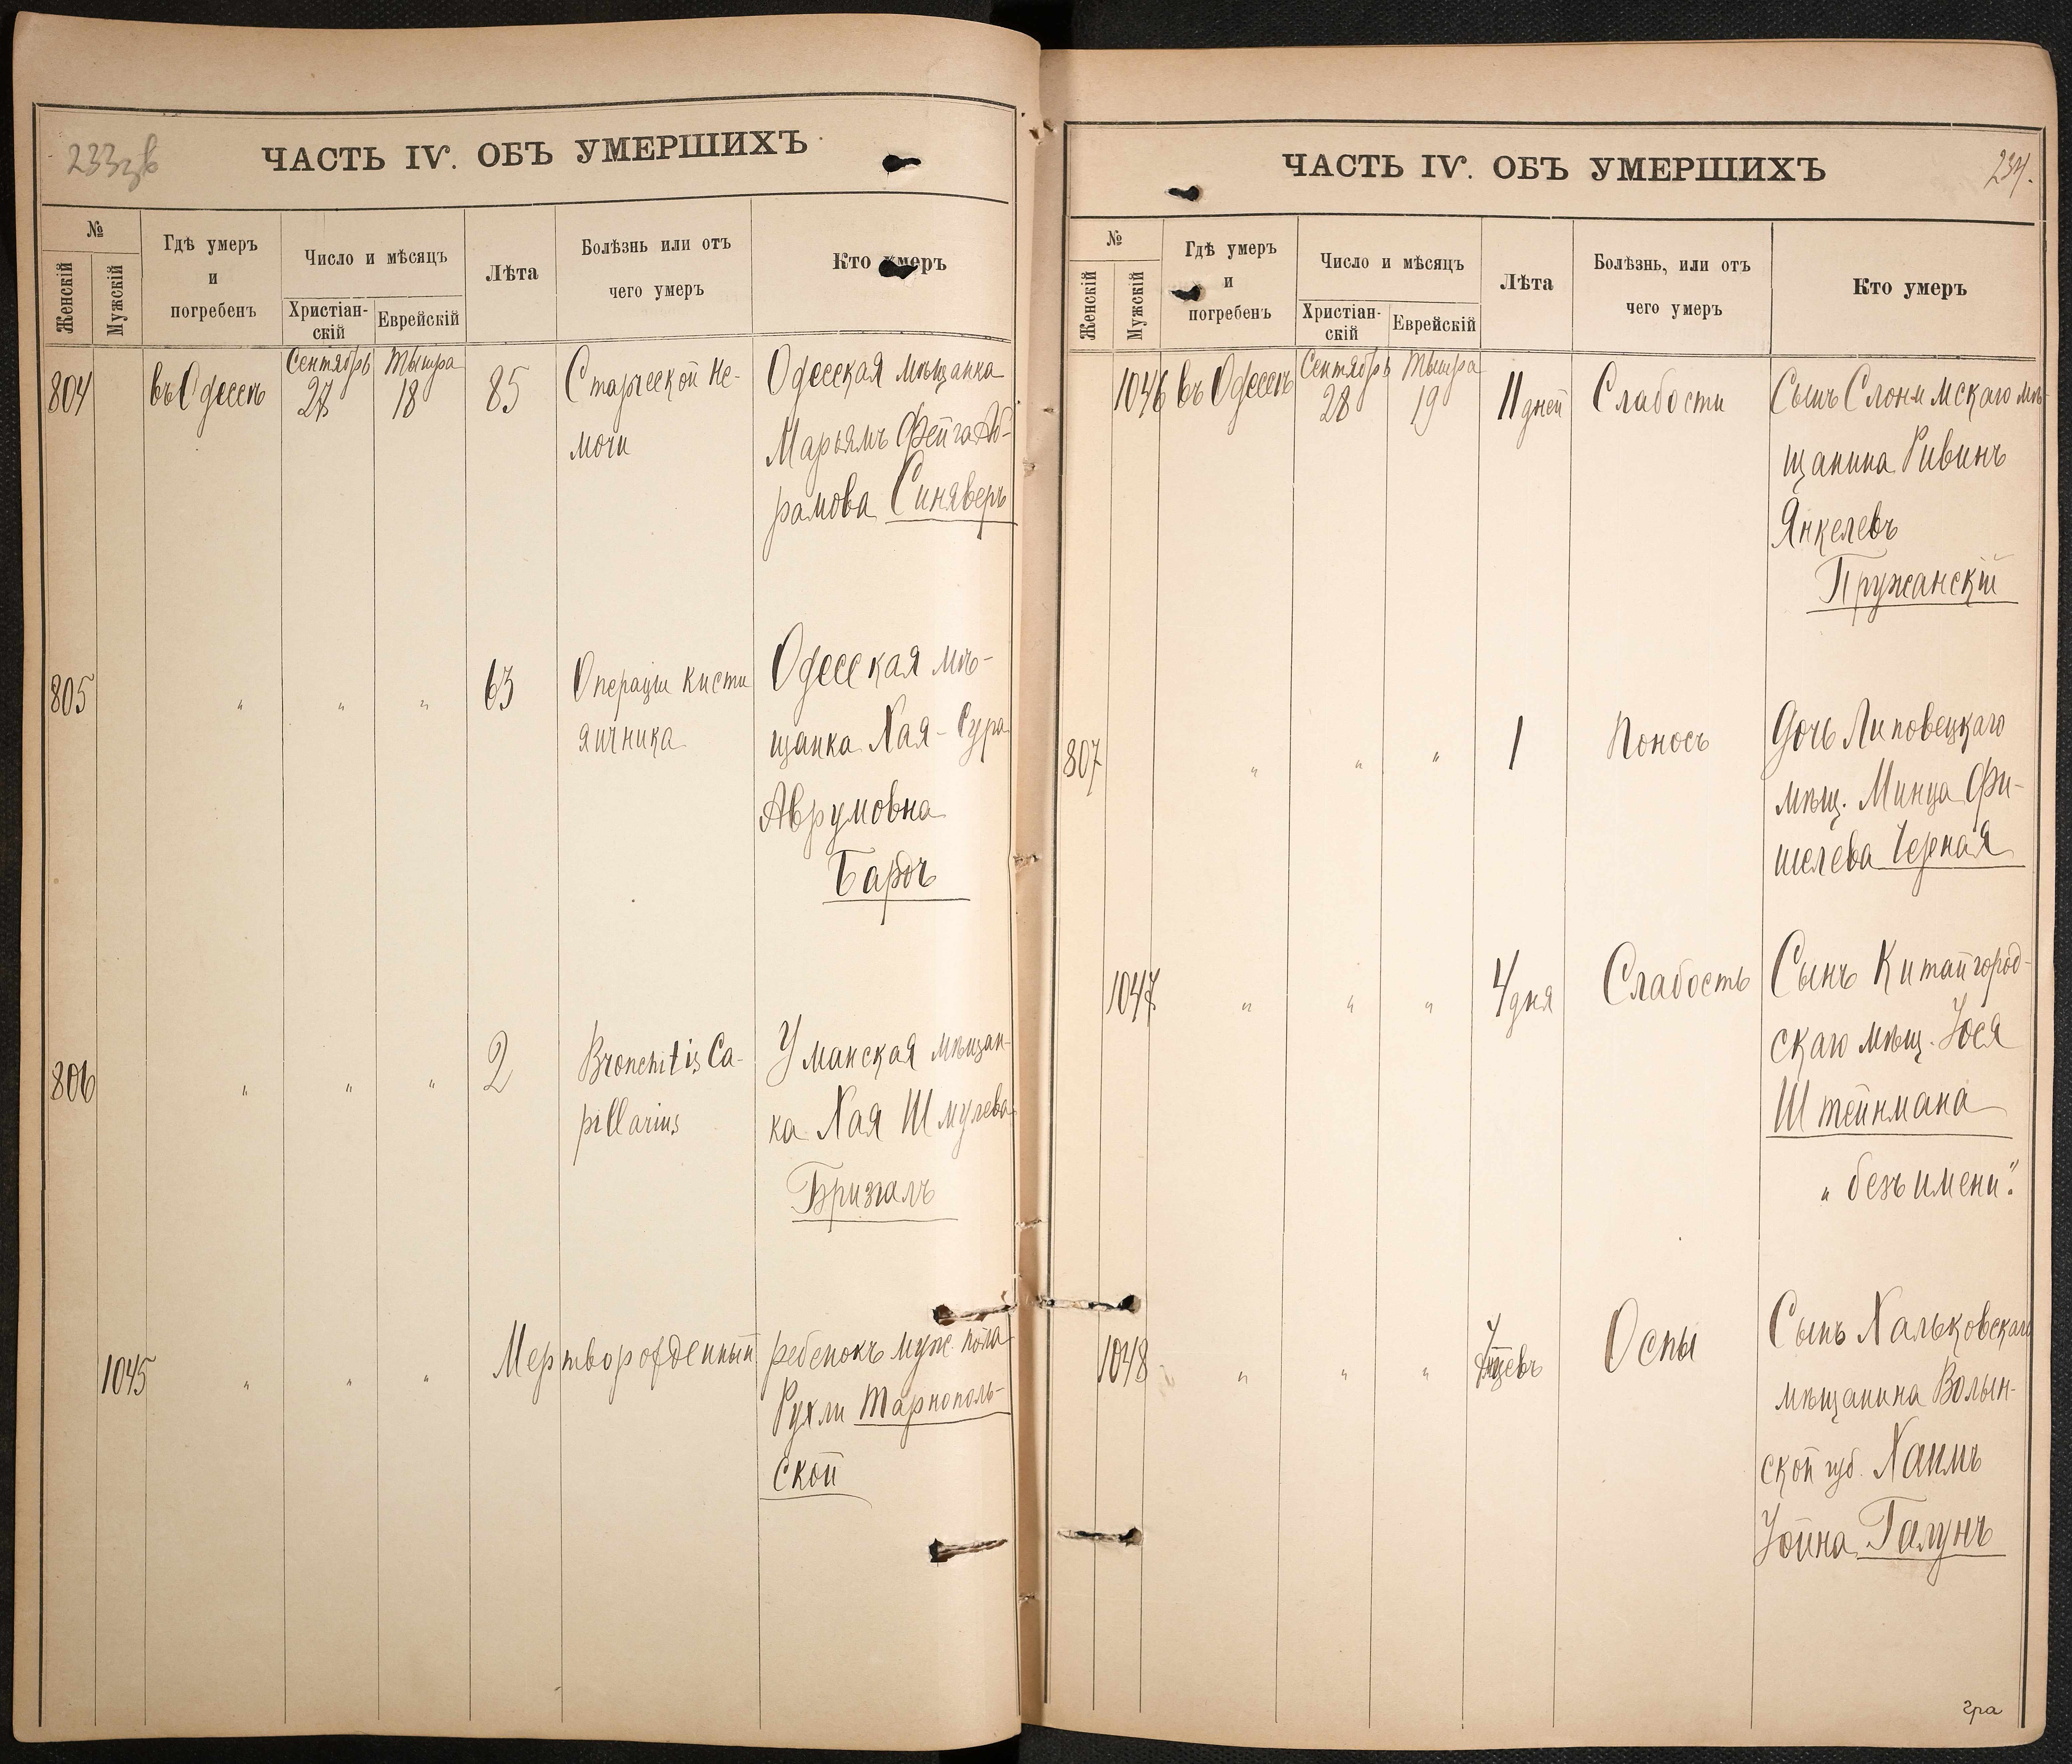 233зв
ЧАСТЬ IV. ОБЪ УМЕРШИХЪ
№
Женскій
Мужскій
Гдѣ умеръ
и
погребенъ
Число и мѣсяцъ
Христіан-
скій
Еврейскій
Лѣта
Болѣзнь или отъ
чего умеръ
Кто умеръ
Сентябрь Тышра
804 въ Одессѣ 27 18 85 Старческой не-
мочи
Одесская мѣщанка
Марьямъ Фейга Аб-
рамова Синяверъ
805 " " " 63 Операціи кисты
яичника
Одесская мѣ-
щанка Хая-Сура
Аврумовна
Бардъ
806 " " " 2 Bronchitis Ca-
pillarius
Уманская мѣщан-
ка Хая Шмулева
Бризгалъ
1045 " " " Мертворожденный ребенокъ муж. пола
Рухли Тарнополь-
ской
ЧАСТЬ IV. ОБЪ УМЕРШИХЪ
234.
№
Женскій
Мужскій
Гдѣ умеръ
и
погребенъ
Число и мѣсяцъ
Христіан-
скій
Еврейскій
Лѣта
Болѣзнь, или отъ
чего умеръ
Кто умеръ
Сентябрь Тышра
1046 въ Одессѣ 28 19 11 дней Слабости
Сынъ Слонимскаго мѣ-
щанина Ривинъ
Янкелевъ
Пружанскій
807 " " " 1 Поносъ
Дочь Липовецкаго
мѣщ. Минца Фи-
шелева Черная
1047 " " " 4 дня Слабость
Сынъ Китайгород-
скаго мѣщ. Іося
Штейнмана
„безъ имени".
1048 " " " Оспы
Сынъ Хальковскаго
мѣщанина Волын-
ской губ. Хаимъ
Іойна Галунъ
гра